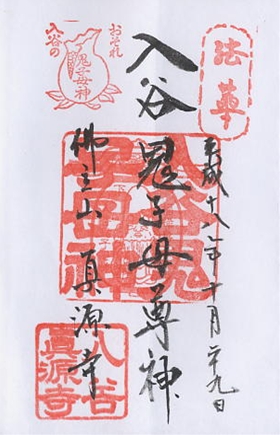 法華
平成十八年十月二十九日
入谷 鬼子母尊神
佛立山 真源寺
おそれ
入谷の
鬼子母神
入谷鬼
子母神
入谷
真源寺